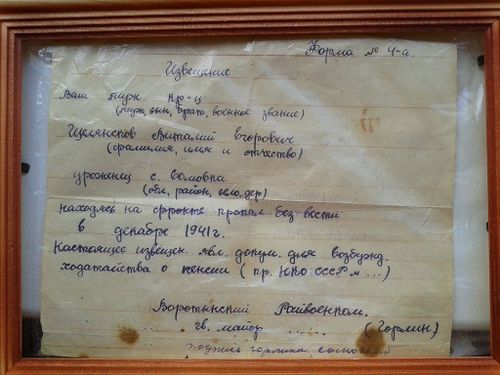 Форма № 4-а.
Извещение
Ваш муж кр-ц
(муж, сын, брат, военное звание)
Виталий Егорович
(фамилия, имя и отчество)
уроженец с. Фомовка
(обл, район, село, дер)
находясь на фронте пропал без вести
в декабре 1941г.
Настоящее извещен. явл. докум. для возбужд.
ходатайства о пенсии (пр. НКО СССР № ...)
Воротынский Райвоенком.
гв. майор ..... (Горлин)
подпись горлина